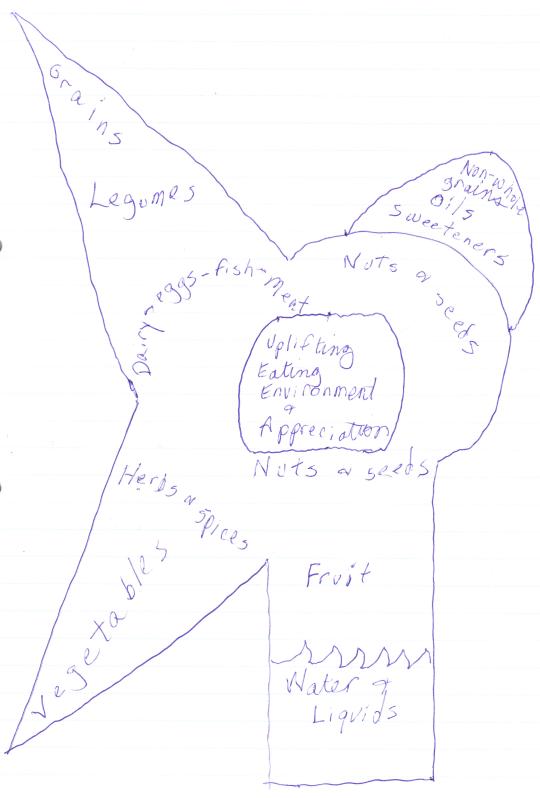 Grains
Legumes
Non-whole
grains
Oils
Sweeteners
Nuts & seeds
Dairy-eggs-fish-meat
Uplifting
Eating
Environment
&
Appreciation
Nuts & seeds
Herbs & Spices
Vegetables
Fruit
Water &
Liquids